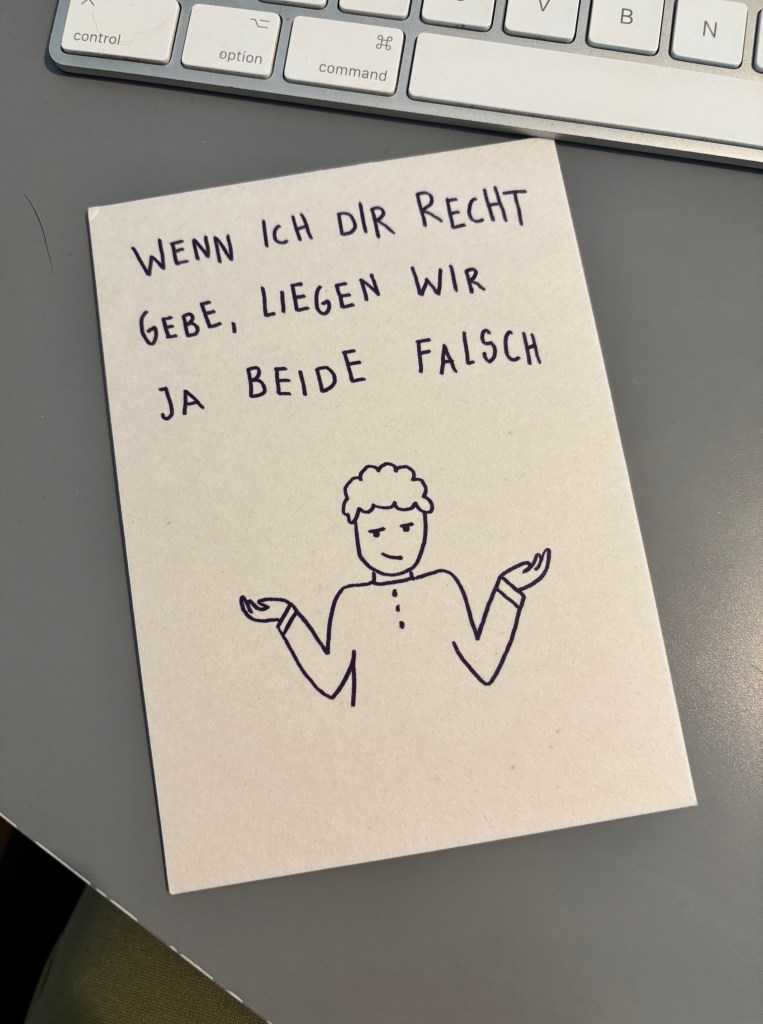 control
option
⌘
command
V
B
N
WENN ICH DIR RECHT
GEBE, LIEGEN WIR
JA BEIDE FALSCH